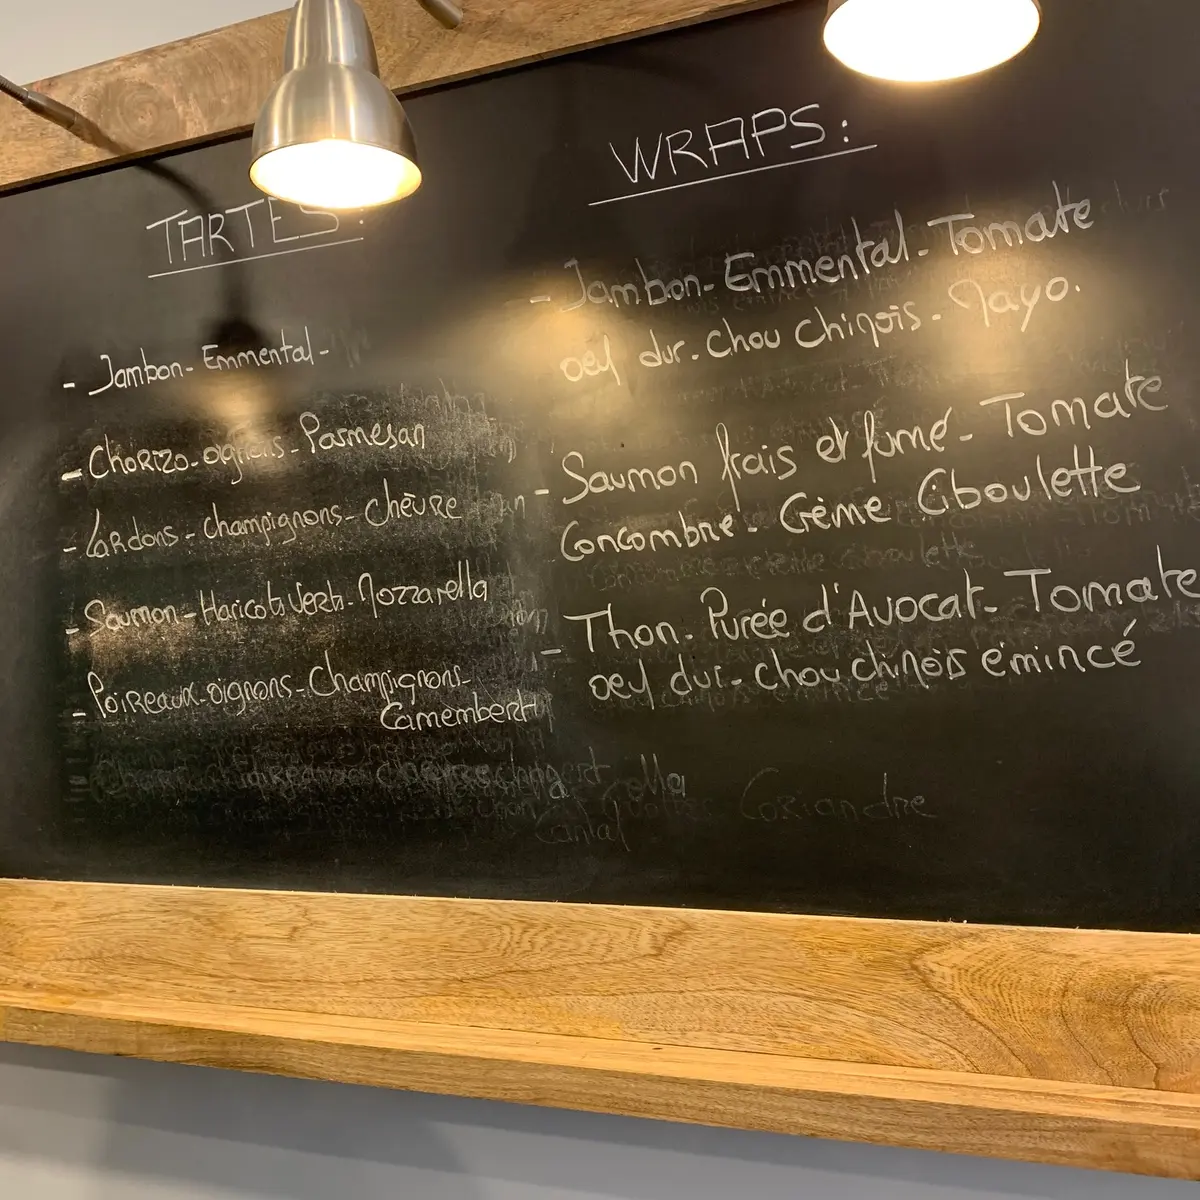 TARTES:
- Jambon - Emmental -
- Chorizo - oignons - Parmesan
- Lardons - champignons - chèvre
- Saumon - Haricots Verts - Mozzarella
- Poireaux - oignons - Champignons -
Camembert
WRAPS:
- Jambon - Emmental - Tomate
oeuf dur - chou chinois - Mayo.
- Saumon frais et fumé - Tomate
Concombre - Crème Ciboulette
- Thon - Purée d'Avocat - Tomate
oeuf dur - chou chinois émincé
Coriandre
Cantal